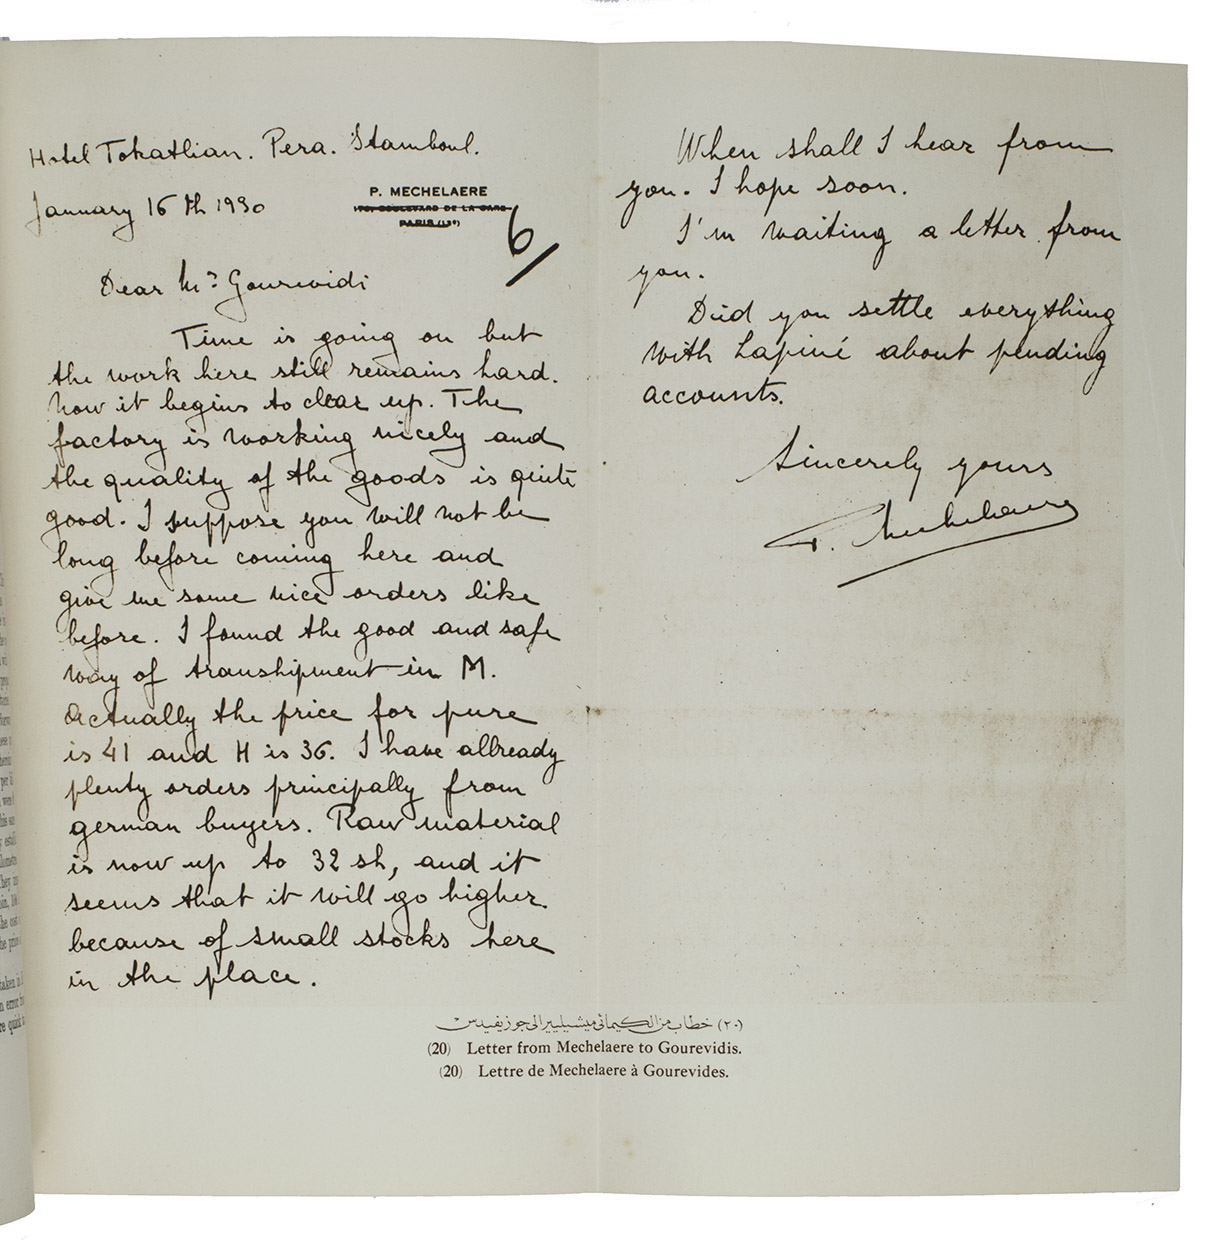 Hotel Tokatlian. Pera. Stamboul.
January 16th 1930
P. MECHELAERE
BOULEVARD DE LA GARE
PARIS (13e)
6/
Dear Mr Gourevidi
Time is going on but
the work here still remains hard.
Now it begins to clear up. The
factory is working nicely and
the quality of the goods is quite
good. I suppose you will not be
long before coming here and
give me some nice orders like
before. I found the good and safe
way of transhipment in M.
Actually the price for pure
is 41 and H is 36. I have allready
plenty orders principally from
german buyers. Raw material
is now up to 32 sh, and it
seems that it will go higher
because of small stocks here
in the place.
When shall I hear from
you. I hope soon.
I'm waiting a letter from
you.
Did you settle everything
with Lapiné about pending
accounts.
Sincerely yours
P. Mechelaere
(٢٠) خطاب من الكيمائى ميشيليير الى جوزيفيدس
(20) Letter from Mechelaere to Gourevidis.
(20) Lettre de Mechelaere à Gourevides.